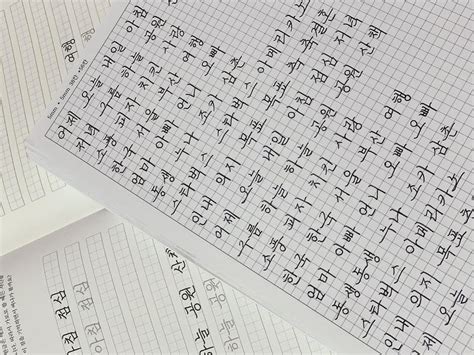 여행
여행
어제 오늘 내일 아침
저녁 구름 하늘 공원
소풍 피자 치킨 사랑
한국 서울 부산 여행
엄마 아빠 언니 오빠
동생 누나 조카 삼촌
스타벅스 아메리카노
인내 의지 목표
어제 오늘 내일 아침 점심 저녁
구름 하늘 공원 산책
소풍 피자 치킨 사랑
한국 서울 부산 여행
엄마 아빠 언니 오빠
동생 누나 조카 삼촌
스타벅스 아메리카노
인내 의지 목표
아침 점심
아침 점심
하늘 공원 산책
하늘 공원